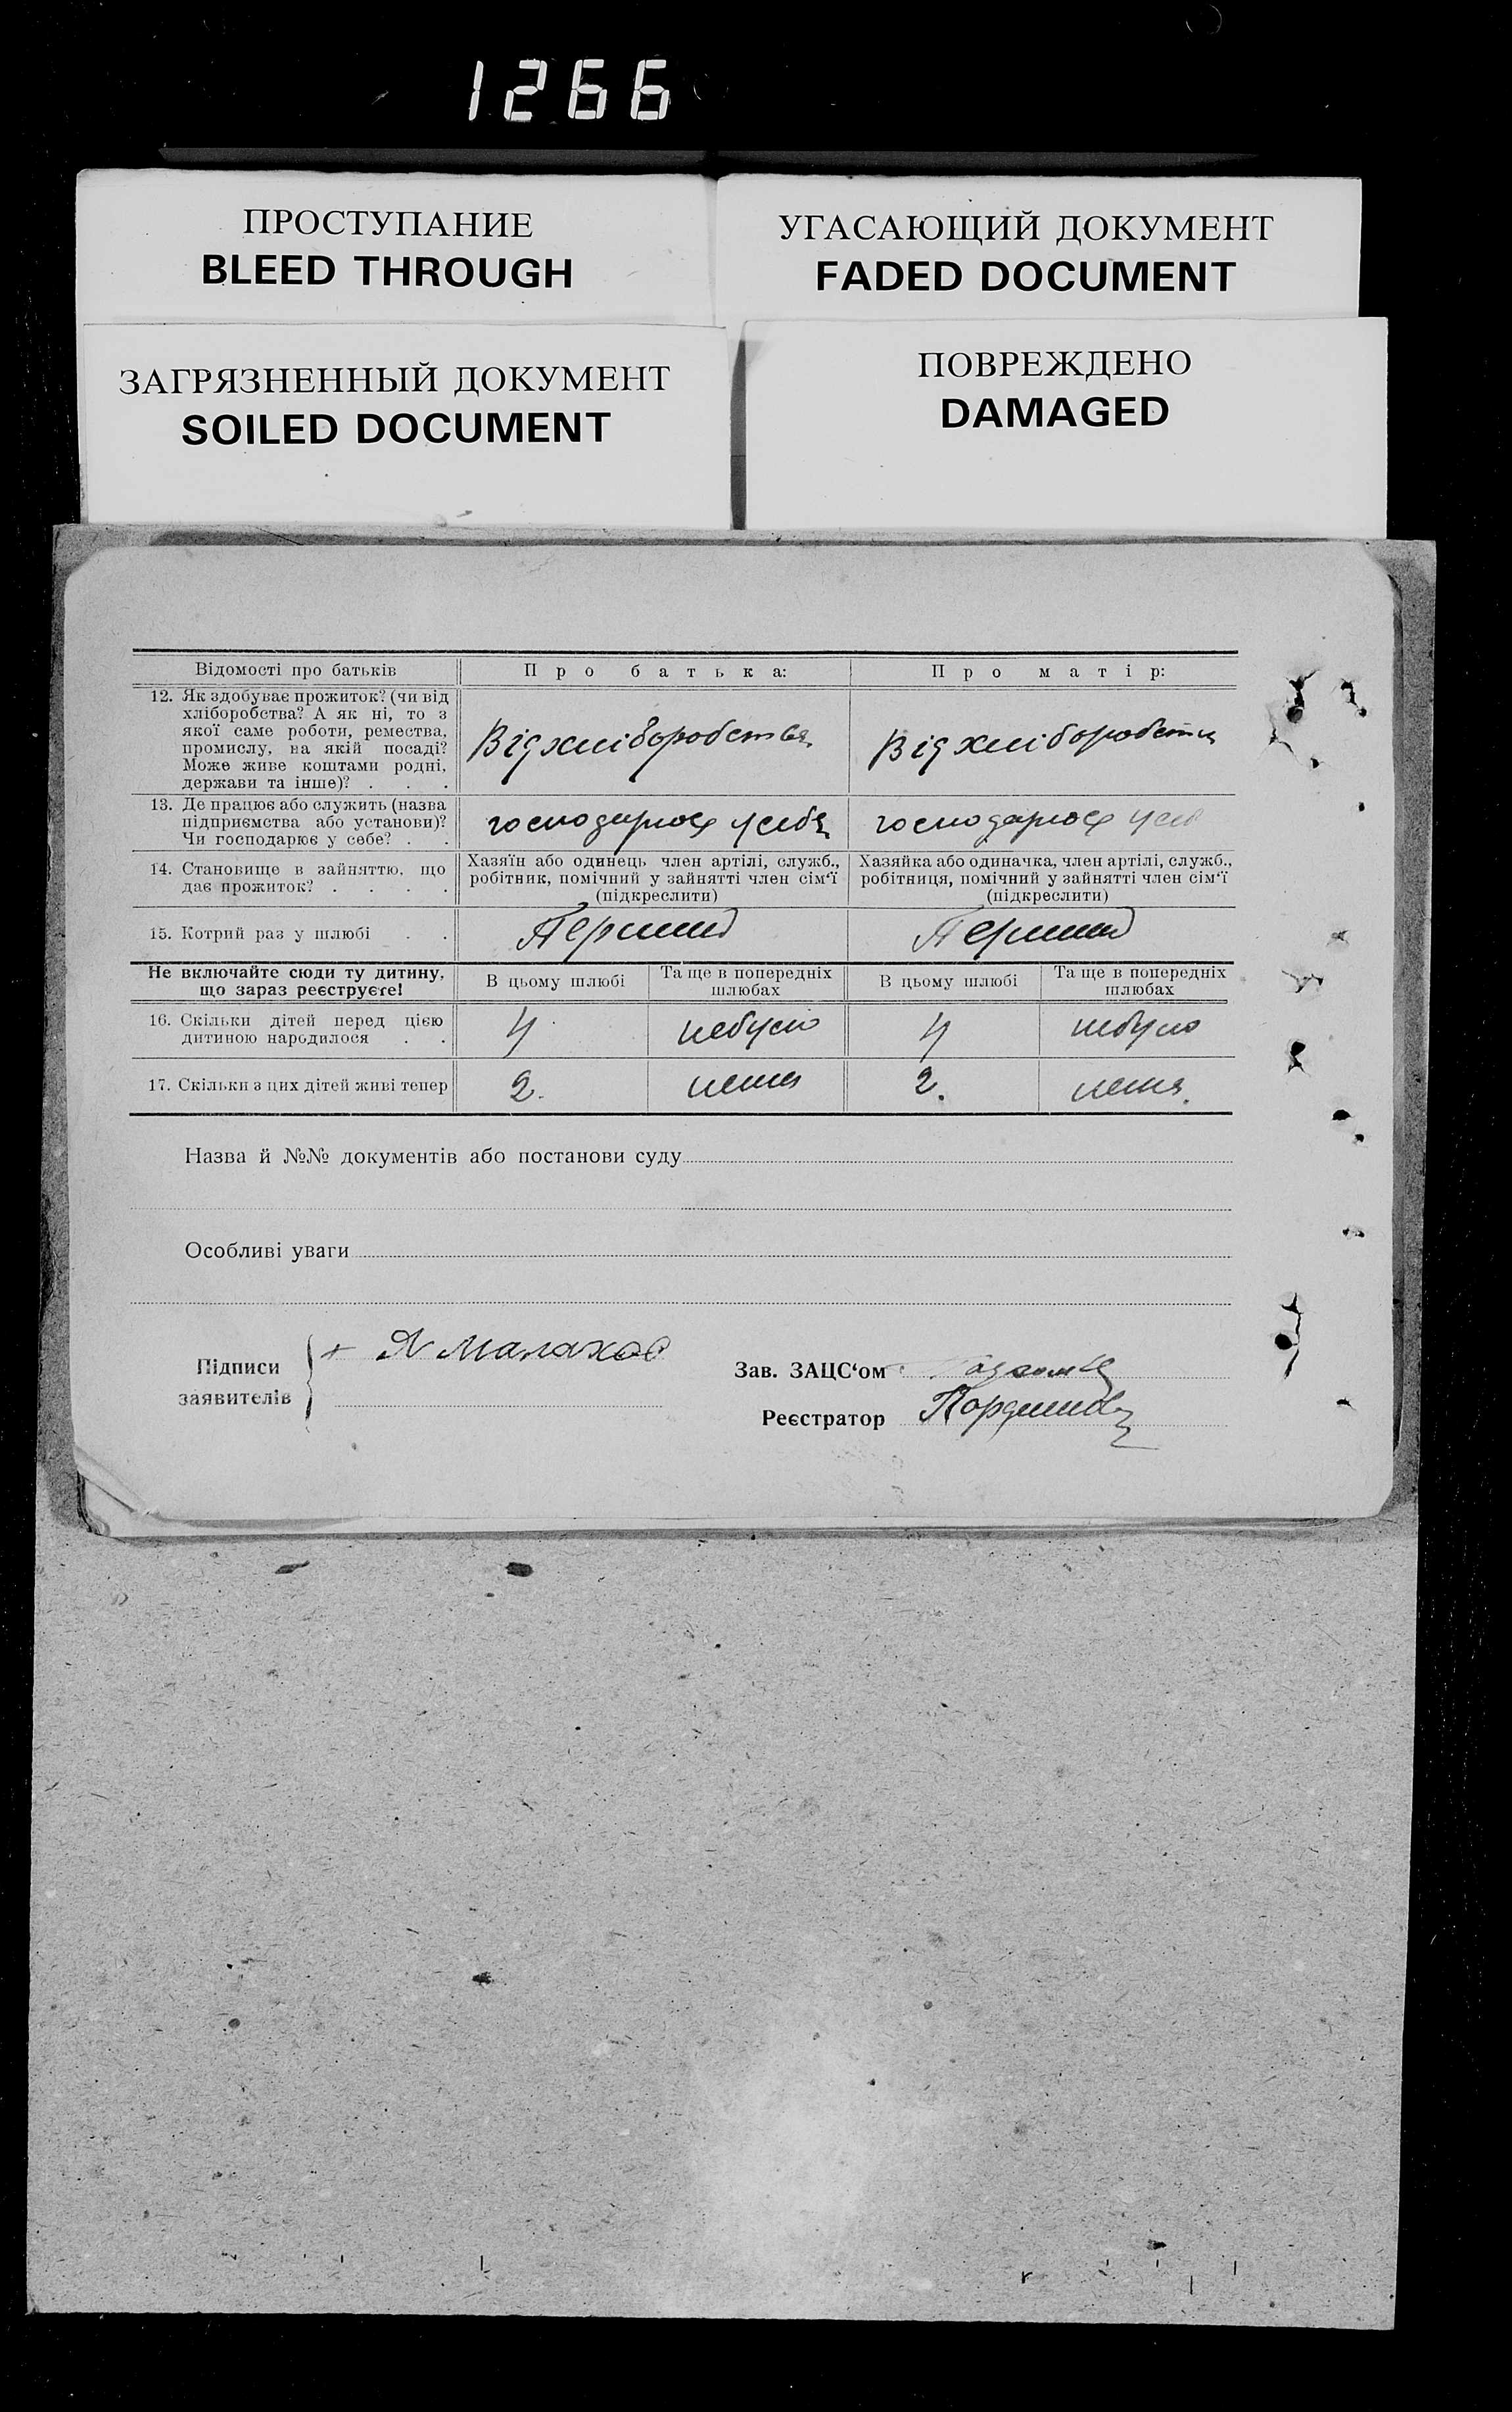 1266
ПРОСТУПАНИЕ
BLEED THROUGH
УГАСАЮЩИЙ ДОКУМЕНТ
FADED DOCUMENT
ЗАГРЯЗНЕННЫЙ ДОКУМЕНТ
SOILED DOCUMENT
ПОВРЕЖДЕНО
DAMAGED
Відомості про батьків
Про батька:
Про матір:
12. Як здобуває прожиток? (чи від
хліборобства? А як ні, то з
якої саме роботи, ремества,
промислу, на якій посаді?
Може живе коштами родні,
держави та інше)? . . .
Від хліборобства
Від хліборобства
13. Де працює або служить (назва
підприємства або установи)?
Чи господарює у себе? . .
господарює у себе
господарює у себ
14. Становище в зайняттю, що
дає прожиток? . . . .
Хазяїн або одинець член артілі, служб.,
робітник, помічний у зайнятті член сім‘ї
(підкреслити)
Хазяйка або одиначка, член артілі, служб.,
робітниця, помічний у зайнятті член сім‘ї
(підкреслити)
15. Котрий раз у шлюбі . .
Перший
Перший
Не включайте сюди ту дитину,
що зараз реєструєте!
В цьому шлюбі
Та ще в попередніх
шлюбах
В цьому шлюбі
Та ще в попередніх
шлюбах
16. Скільки дітей перед цією
дитиною народилося . .
4
небуло
4
небуло
17. Скільки з цих дітей живі тепер
2.
нема
2.
нема.
Назва й №№ документів або постанови суду
Особливі уваги
Підписи
заявителів
+ Я Малахов
Зав. ЗАЦС‘ом
Реєстратор